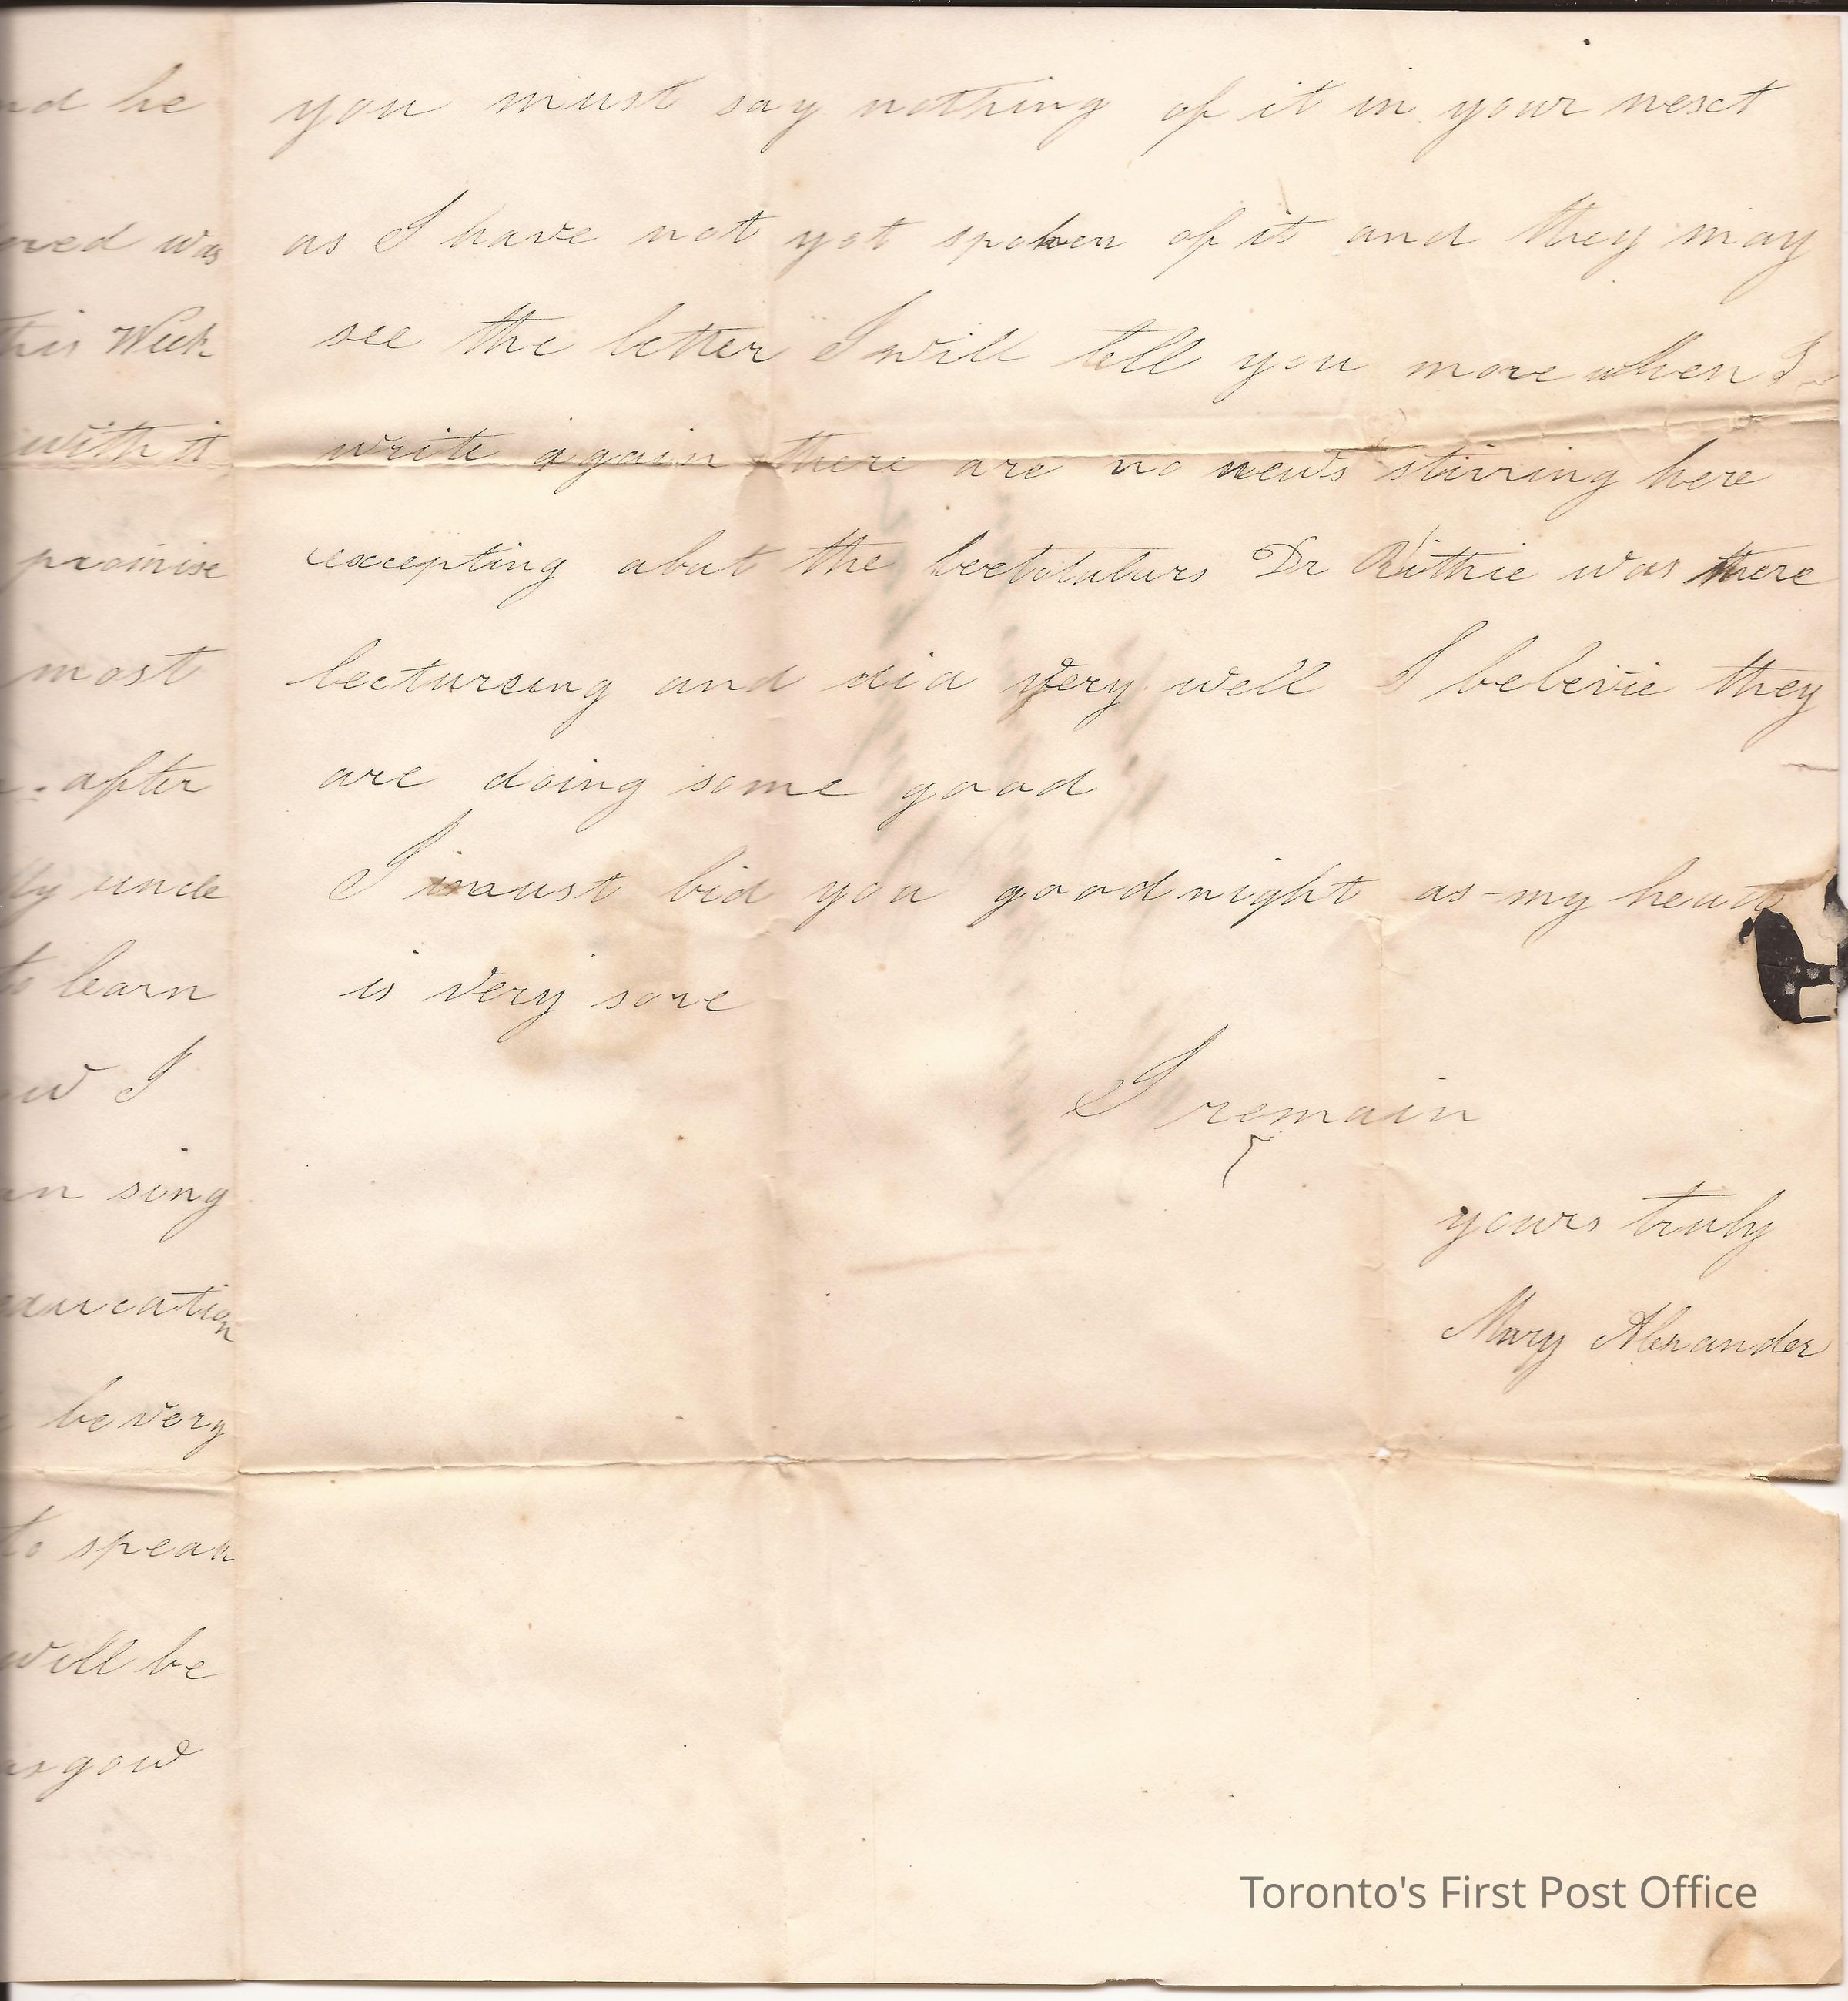 nd he
ned was
this Week
with it
promise
most
after
lly uncle
to learn
ow I
an sing
education
be very
to speak
will be
asgow
you must say nothing of it in your nesct
as I have not yet spoken of it and they may
see the better I will tell you more when I
write again there are no news stirring here
excepting abut the Dr Rithie was there
lectureing and did very well I belevie they
are doing some good
I must bid you goodnight as my
is very sore
I remain
yours truly
Mary Alexander
Toronto's First Post Office